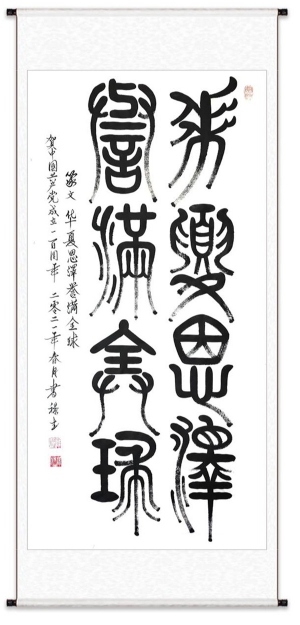 華夏恩澤
譽滿全球
篆文 华夏恩澤誉满全球
贺中国共产党成立一百周年 二零二一年春月书